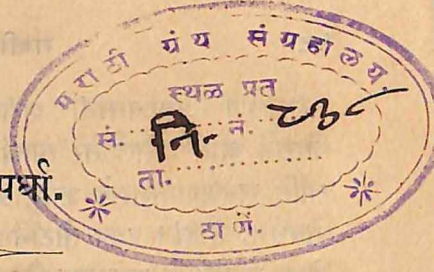 मराठी ग्रंथ संग्रहालय
स्थळ प्रत
सं. नि. नं. ८३८
ता.
ठाणें.
पर्धा.